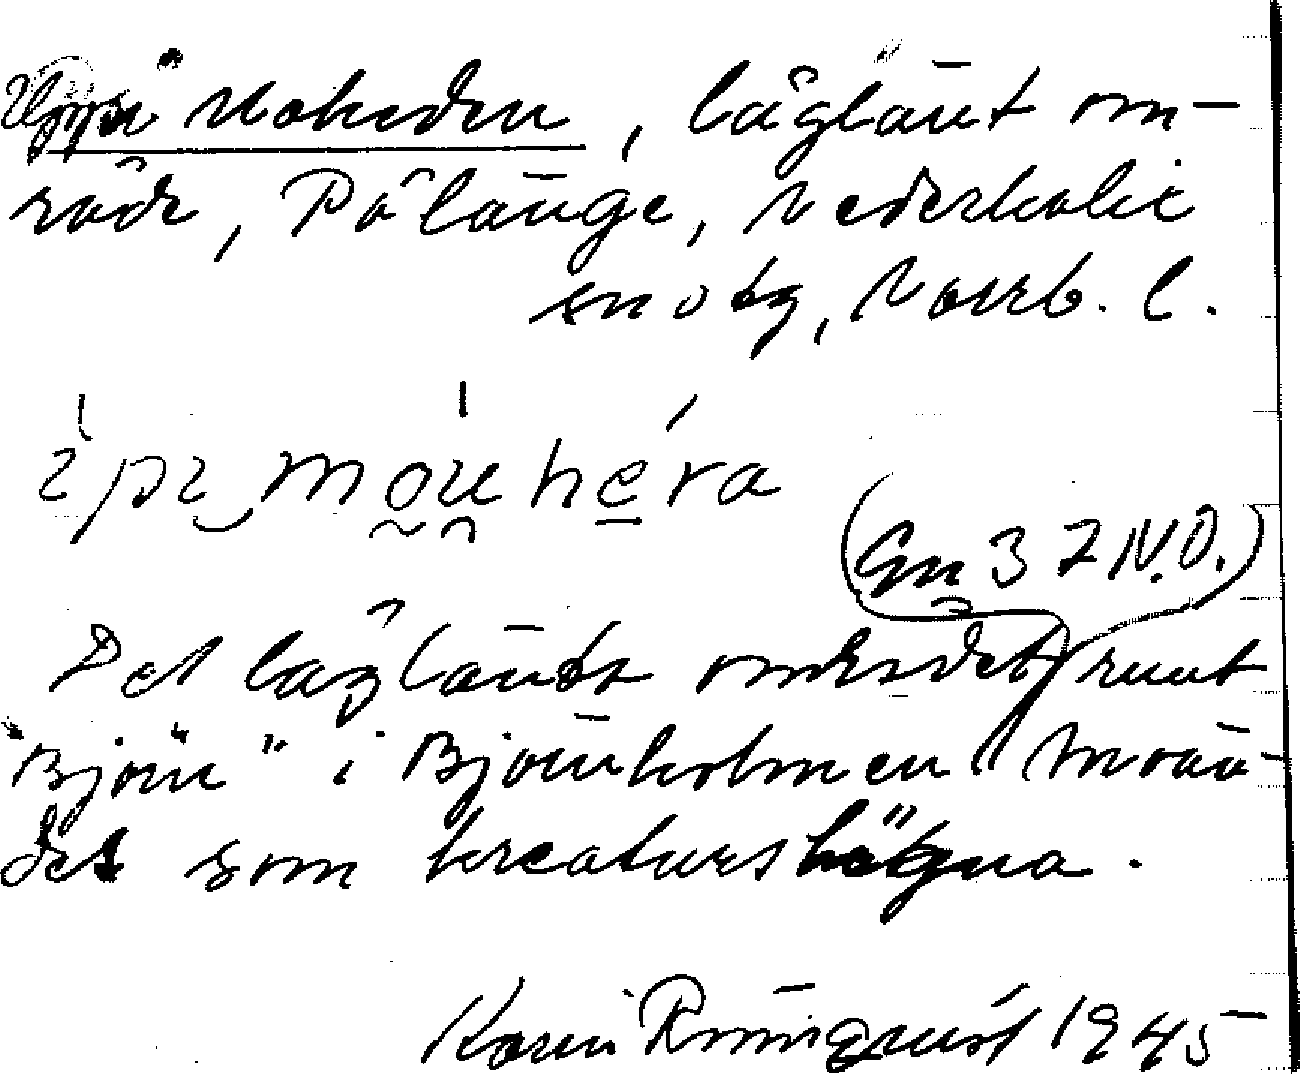 Uppi Moheden, låglänt om-
råde, Pålänge, Nederkalix
sn o tg, Norrb. l.
ɩ́pɩ mo̰u̯ hèra
(Gn 3 7 N.O.)
Det låglänta området runt
"Björn" i Björnholmen
det som kreaturshägna.
Karin Rönnquist 1945